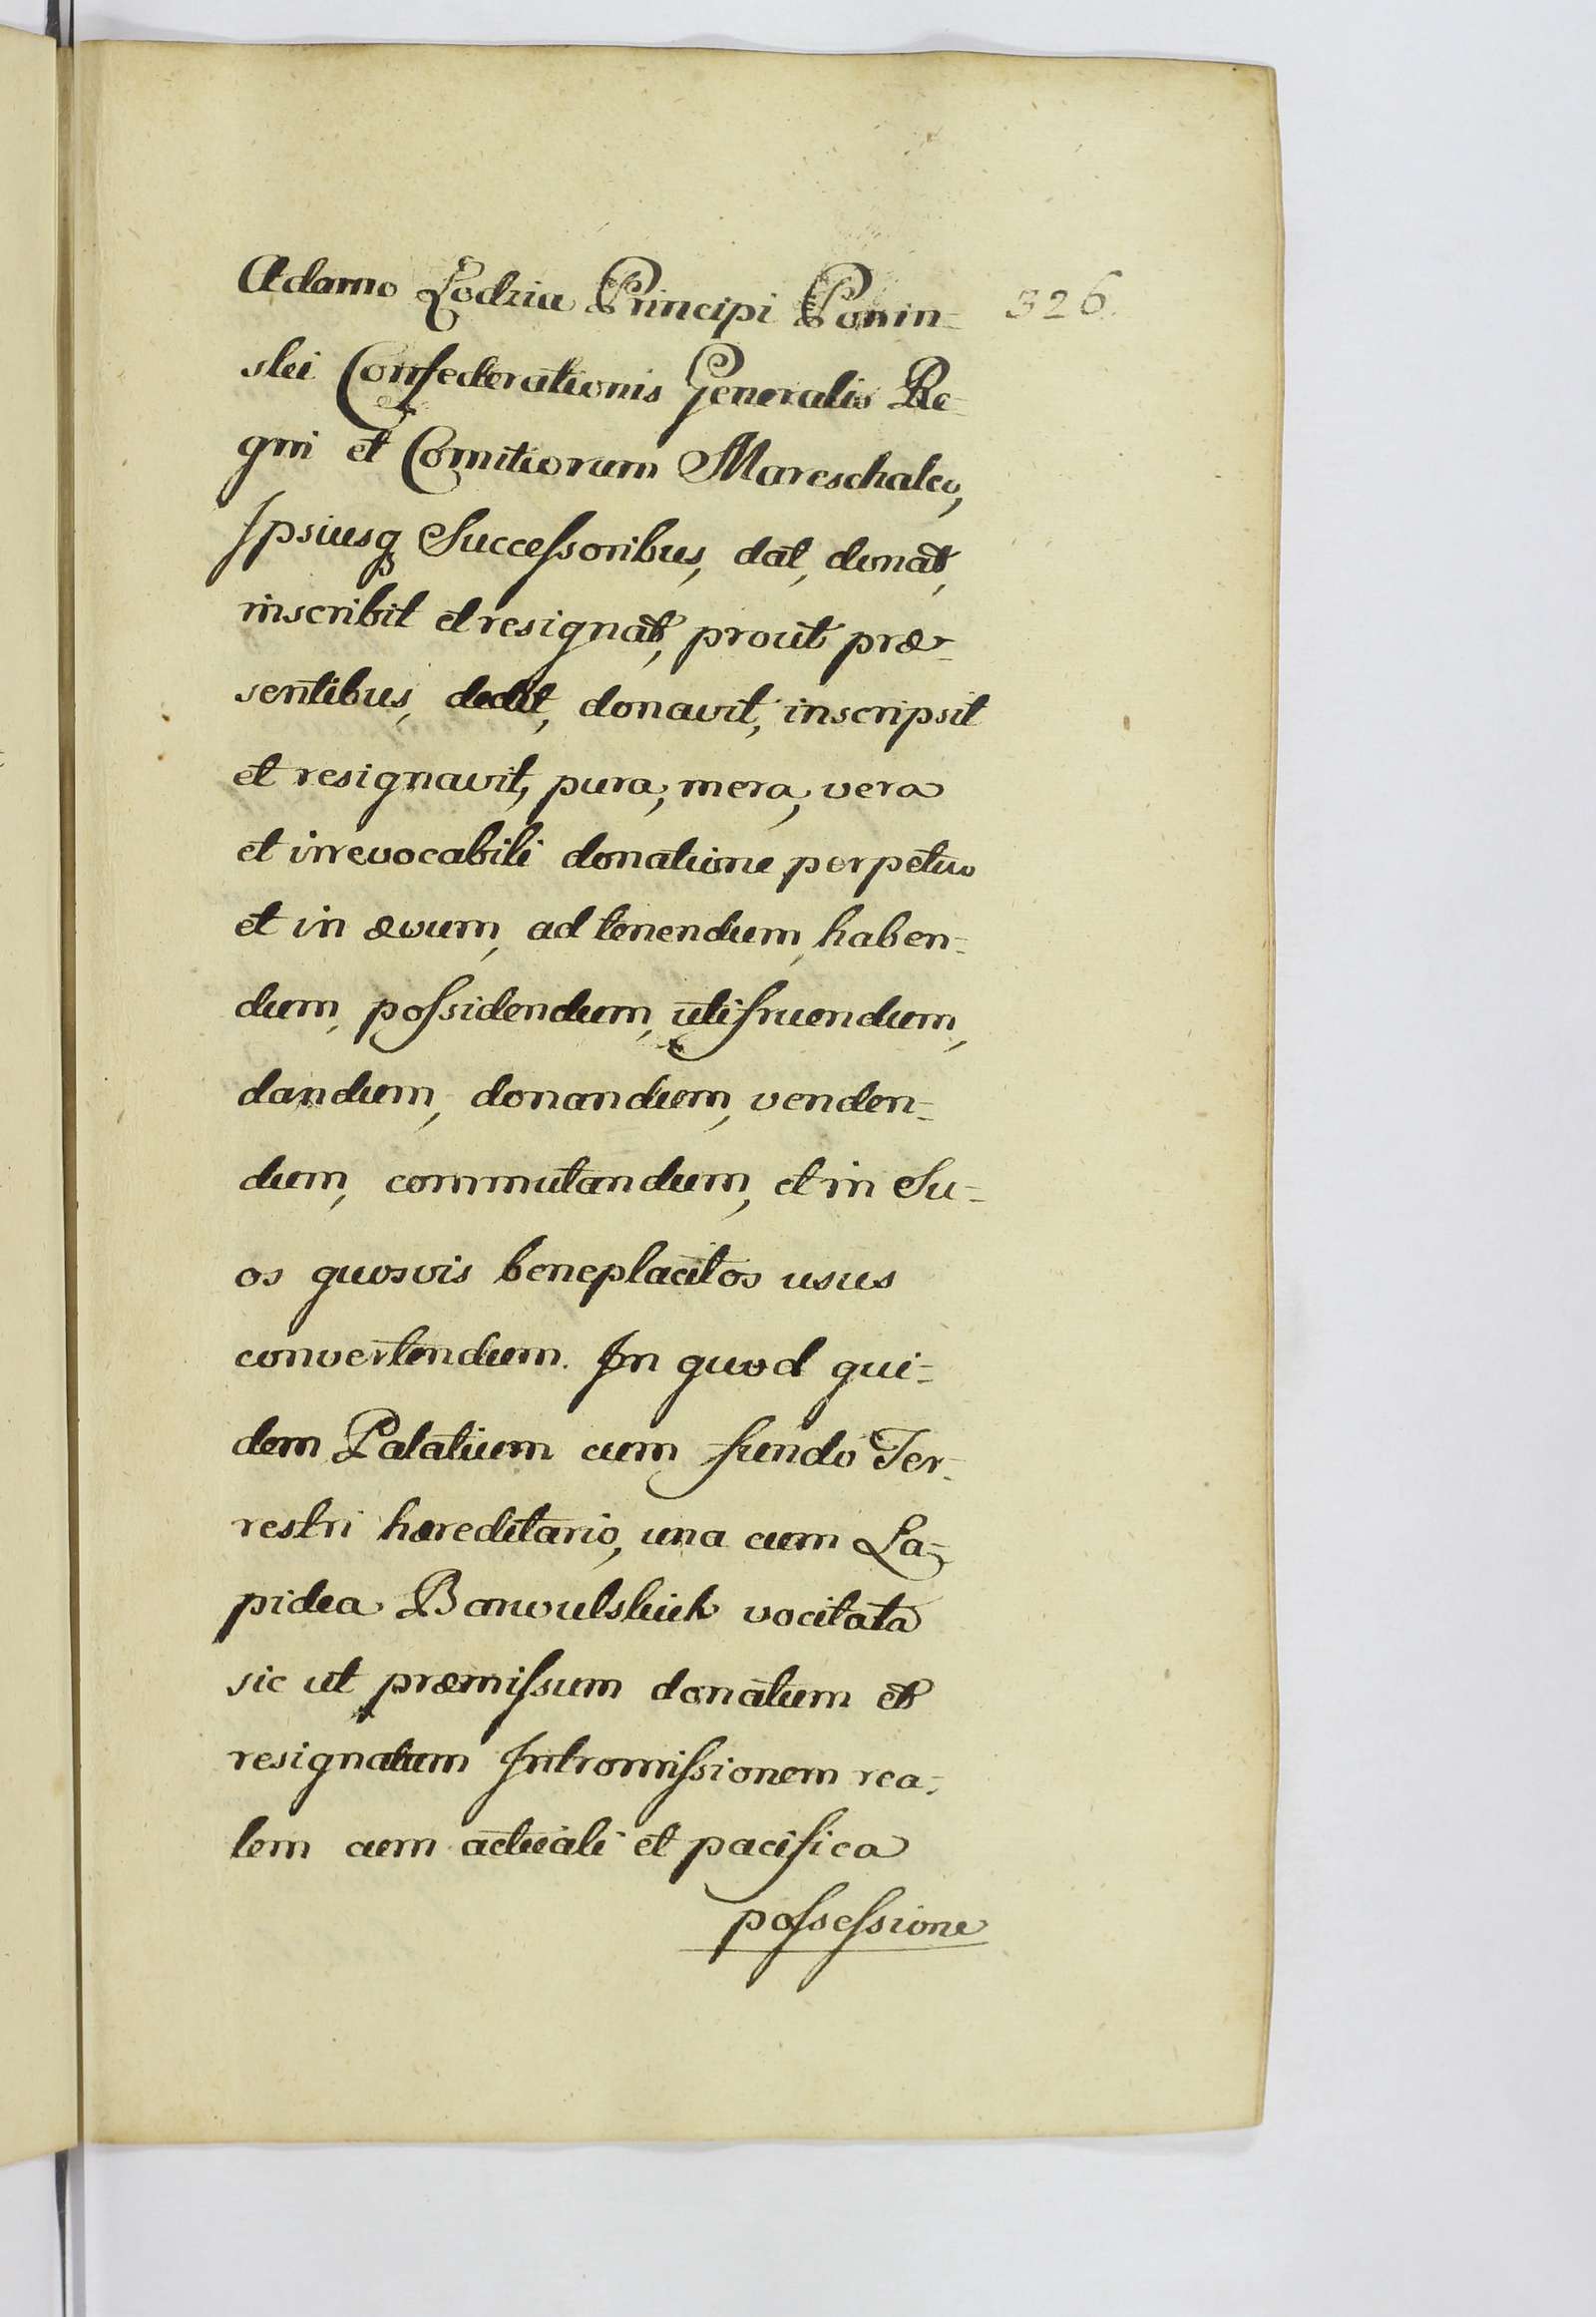 Adamo Lodzia Principi Ponin=
326.
ski Confederationis Generalis Re=
gni et Comitiorum Mareschalco,
Ipsiusq Successoribus, dat, donat,
inscribit et resignat, prout præ=
sentibus, dedit, donavit, inscripsit
et resignavit, pura, mera, vera
et irrevocabili donatione perpetuo
et in ævum, ad tenendum, haben=
dum, possidendum, utifruendum,
dandum, donandum, venden=
dum, commutandum, et in Su=
os quosvis beneplacitos usus
convertendum. In quod qui=
dem Palatium cum fundo Ter=
restri hæreditario, una cum La=
pidea Barwulskich vocitata
sic ut præmissum donatum et
resignatum Intromissionem rea=
lem cum actuali et pacifica
possessione